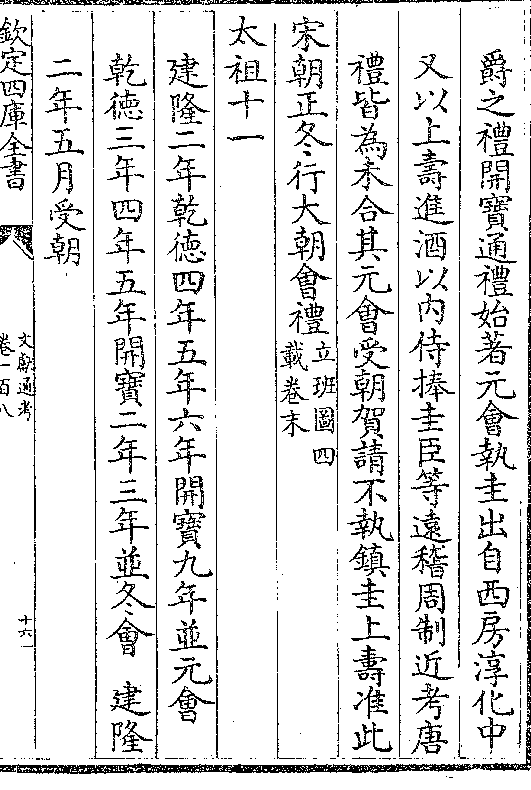 爵之禮開寶通禮始著元會執圭出自西房淳化中
又以上壽進酒以內侍捧圭臣等遠稽周制近考唐
禮皆為未合其元會受朝賀請不執鎮圭上壽准此
宋朝正冬行大朝會禮立班圖四
載卷末
太祖十一
建隆二年乾德四年五年六年開寶九年並元會
乾德三年四年五年開寶二年三年並冬會 建隆
二年五月受朝
欽定四庫全書
文獻通考
卷一百八
十六